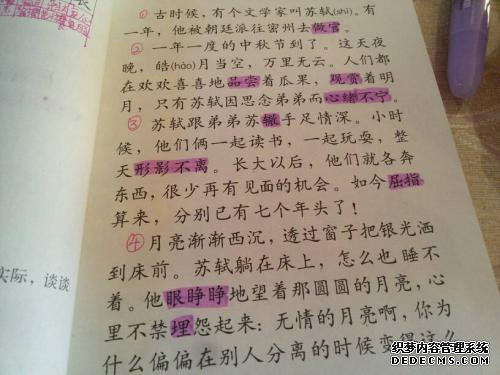 长
实际，谈谈
① 古时候，有个文学家叫苏轼(shì)。有
一年，他被朝廷派往密州去做官。
② 一年一度的中秋节到了。这天夜
晚，皓(hào)月当空，万里无云。人们都
在欢欢喜喜地品尝着瓜果，观赏着明
月，只有苏轼因思念弟弟而心绪不宁。
③ 苏轼跟弟弟苏辙手足情深。小时
候，他们俩一起读书，一起玩耍，整
天形影不离。长大以后，他们就各奔
东西，很少再有见面的机会。如今屈指
算来，分别已有七个年头了！
④ 月亮渐渐西沉，透过窗子把银光洒
到床前。苏轼躺在床上，怎么也睡不
着。他眼睁睁地望着那圆圆的月亮，心
里不禁埋怨起来：无情的月亮啊，你为
什么偏偏在别人分离的时候变得这么
织梦内容管理系统
DEDECMS.COM